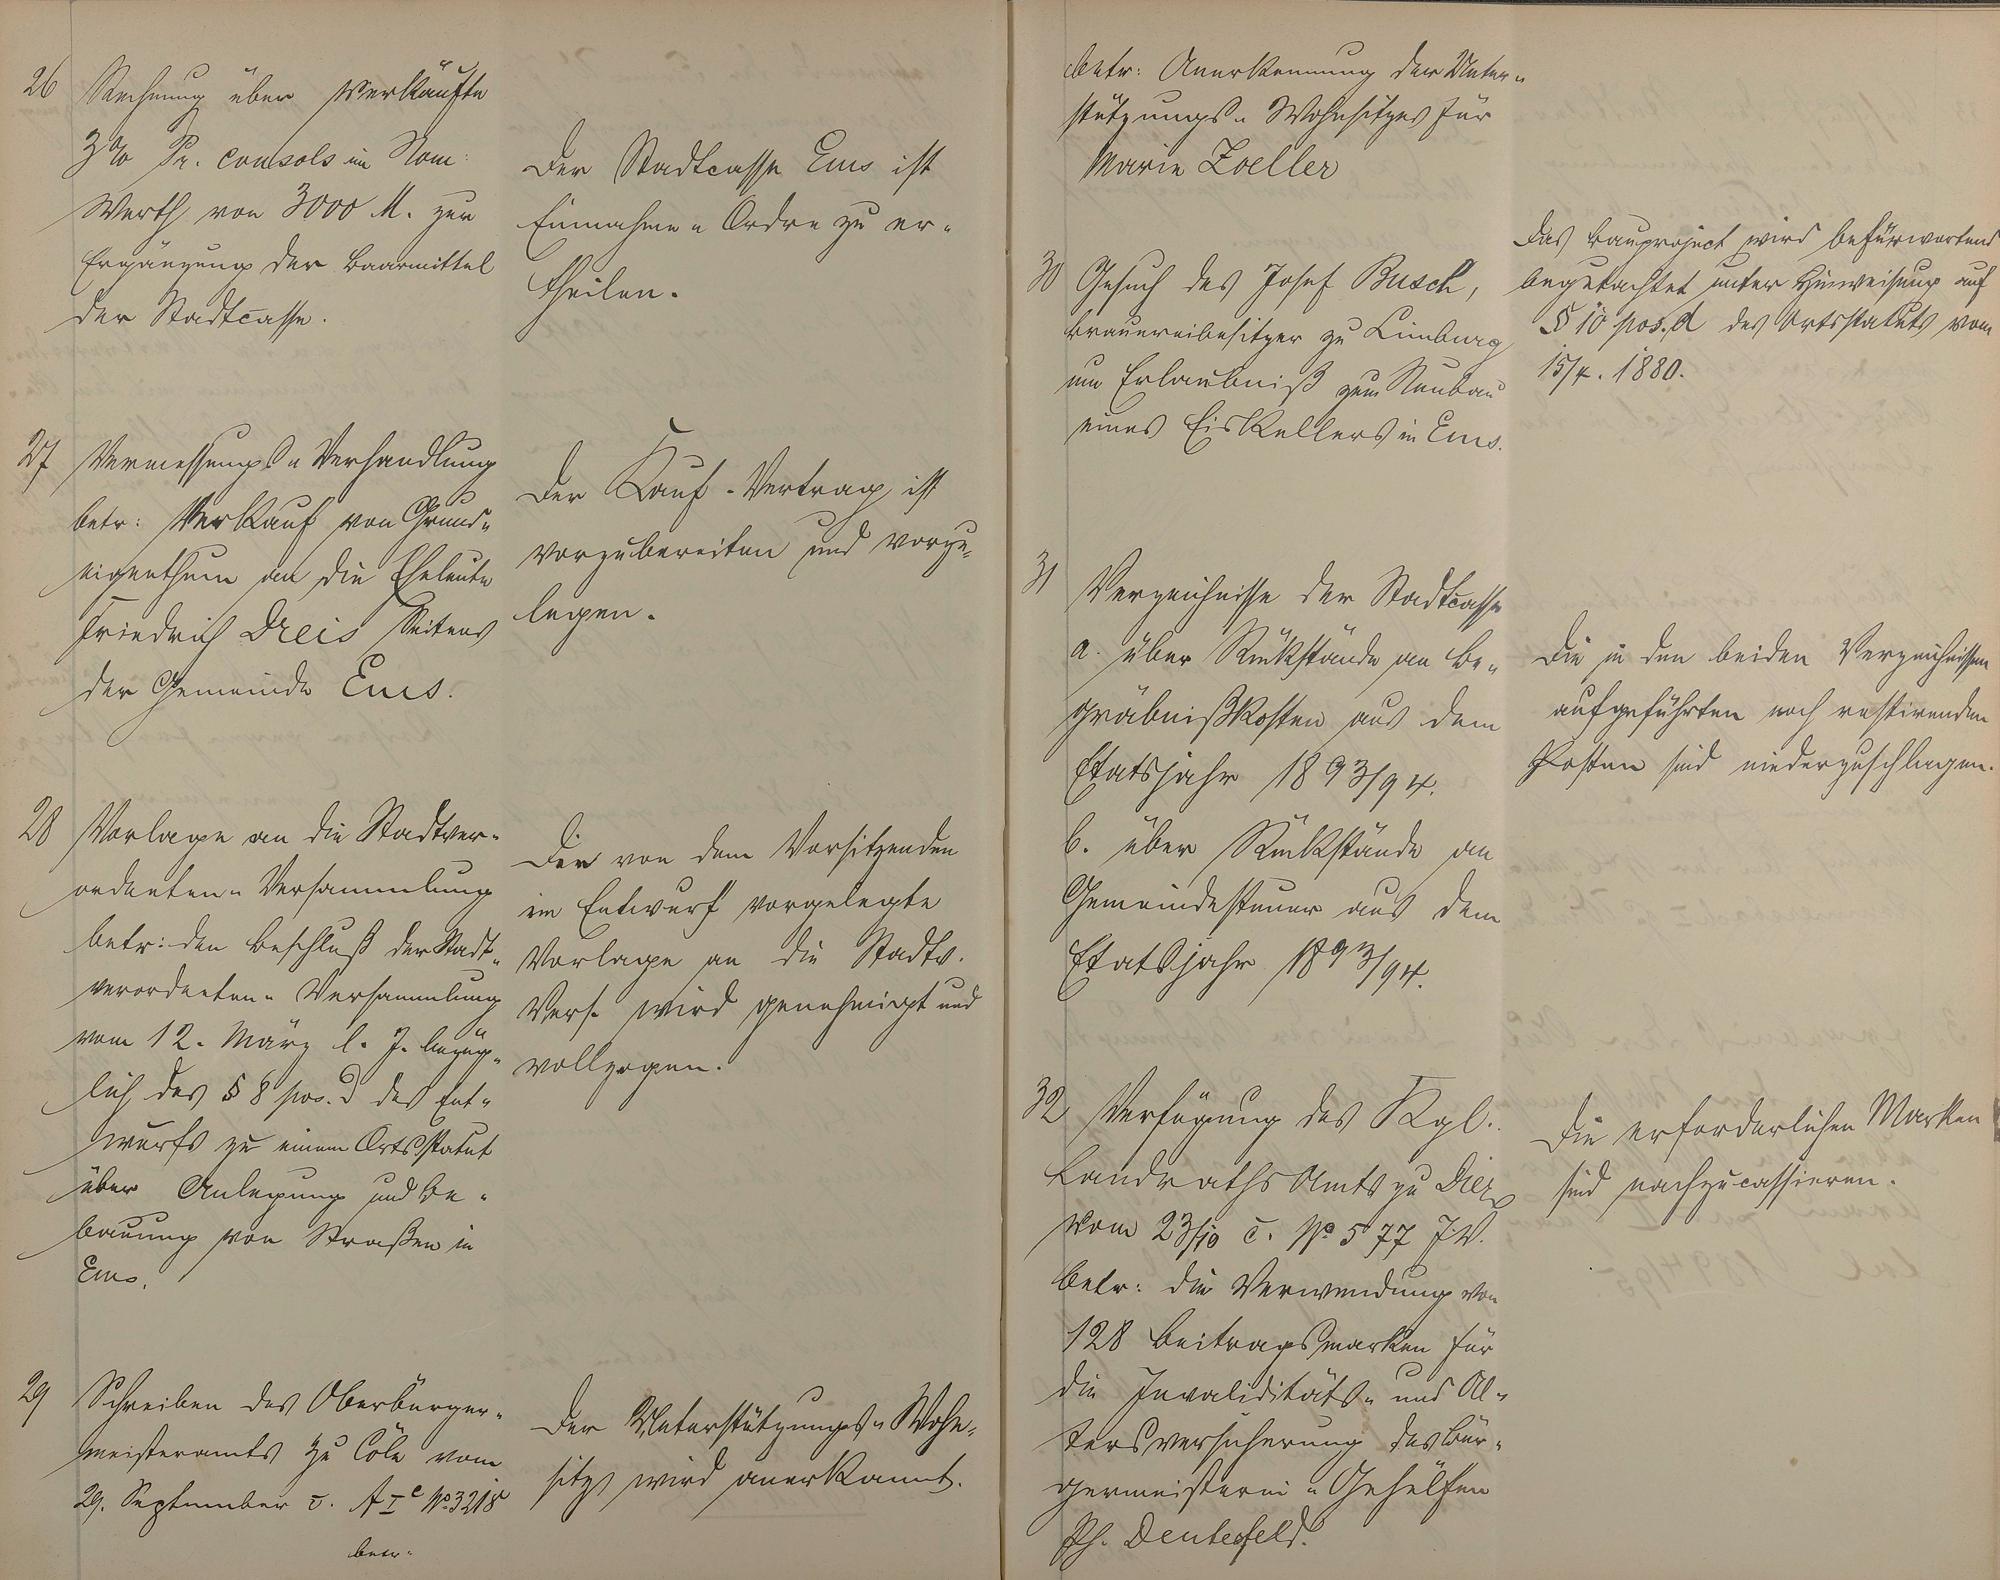 26 Rechnung über verkäufte
3% Pr. consols im Nom:
Werth von 3000 M. zur
Ergänzung der Baarmittel
der Stadtcasse.
Der Stadtcasse Ems ist
Einnahme-Ordre zu er-
theilen.
27 Vermessungs-Verhandlung
betr: Verkauf von Grund-
eigenthum an die Eheleute
Friedrich Dreis Seitens
der Gemeinde Ems.
Der Kauf-Vertrag ist
vorzubereiten und vorzu-
legen.
28 Vorlage an die Stadtver-
ordneten-Versammlung
betr: den Beschluß der Stadt-
verordneten-Versammlung
vom 12. März l. J. bezüg-
lich des § 8 pos. d des Ent-
wurfs zu einem Ortsstatut
über Anlegung und Be-
bauung von Straßen in
Ems.
Die von dem Vorsitzenden
im Entwurf vorgelegte
Vorlage an die Stadtv.
Vers. wird genehmigt und
vollzogen.
29 Schreiben des Oberbürger-
meisteramts zu Cöln vom
29. September c. A I c No 3218
betr.
Der Unterstützungs-Wohn-
sitz wird anerkannt.
betr: Anerkennung des Unter-
stützungs-Wohnsitzes für
Marie Zoeller
30 Gesuch des Josef Busch,
Brauereibesitzer zu Limburg
um Erlaubniß zum Neubau
eines Eiskellers in Ems.
Das Bauproject wird befürwortend
begutachtet unter Hinweisung auf
§ 10 pos. d des Ortsstatuts vom
15/4. 1880.
31 Verzeichnisse der Stadtcasse
a. über Rückstände an Be-
gräbnißkosten aus dem
Etatsjahr 1893/94.
b. über Rückstände an
Gemeindesteuer aus dem
Etatsjahr 1893/94.
Die in den beiden Verzeichnissen
aufgeführten noch restirenden
Posten sind niederzuschlagen.
32 Verfügung des Kgl.
Landraths Amts zu Diez
vom 23/10 c. No 577 J.V.
betr: die Verwendung von
128 Beitragsmarken für
die Invaliditäts- und Al-
tersversicherung des Bür-
germeisterei-Gehülfen
Ph. Deutesfeld.
Die erforderlichen Marken
sind nachzucassieren.